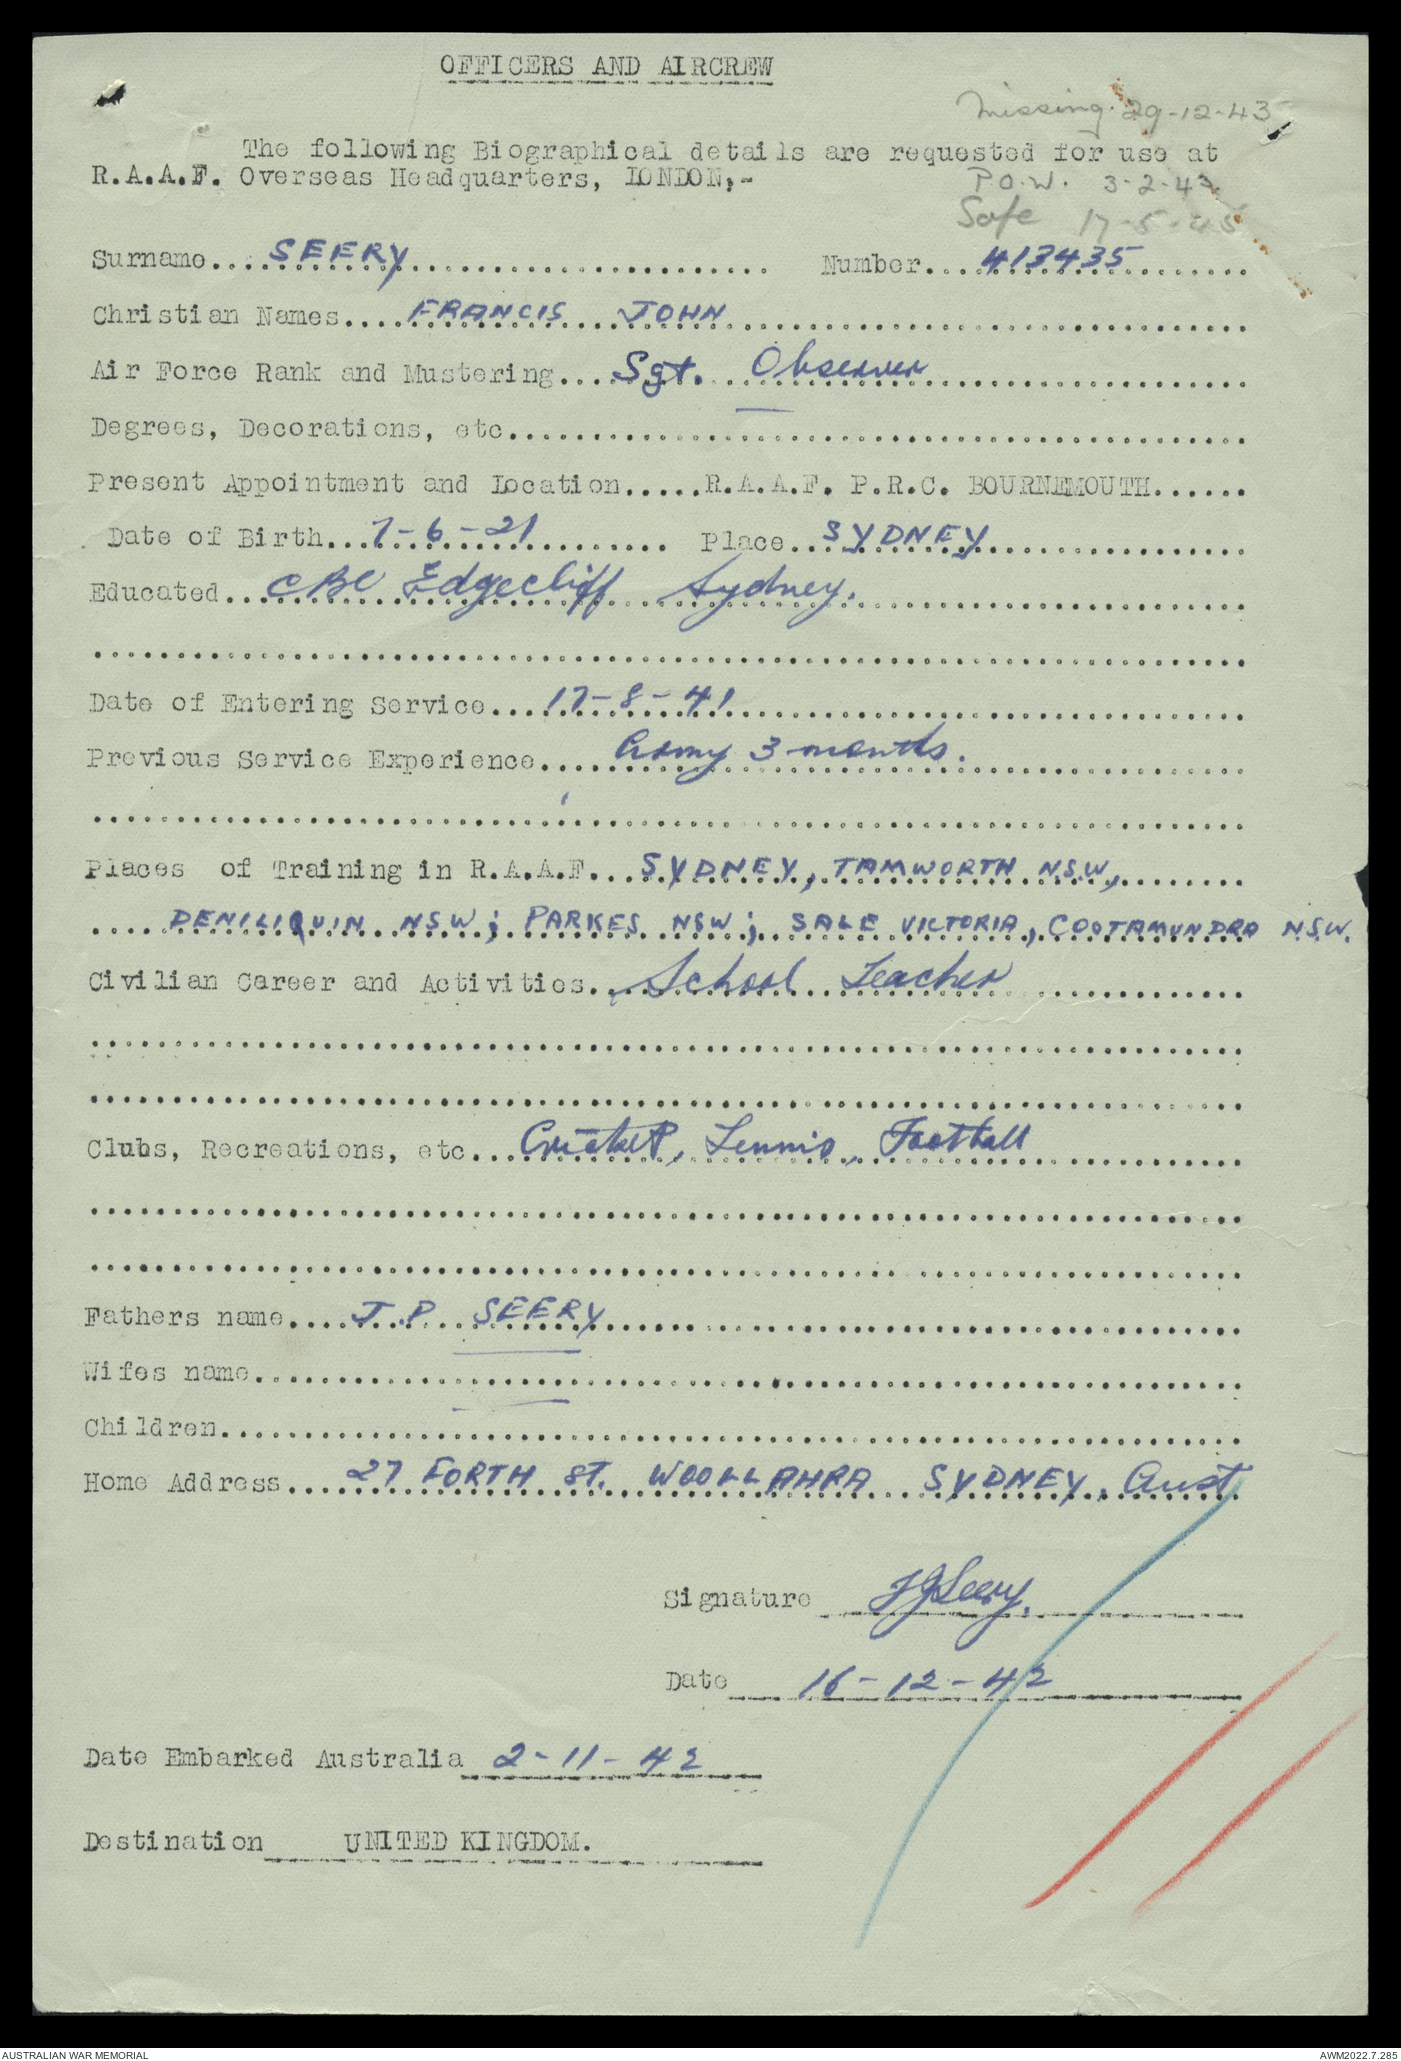 OFFICERS AND AIRCREW
Missing 29-12-43
The following Biographical details are requested for use at
R.A.A.F. Overseas Headquarters, LONDON,-
P.O.W. 3-2-43
Safe 17-5-45
Surname....SEERY.... Number....413435....
Christian Names....FRANCIS JOHN....
Air Force Rank and Mustering....Sgt. Observer....
Degrees, Decorations, etc.... — ....
Present Appointment and Location.....R.A.A.F. P.R.C. BOURNEMOUTH......
Date of Birth...7-6-21.... Place...SYDNEY....
Educated...CBC Edgecliff Sydney....
Date of Entering Service....17-8-41....
Previous Service Experience....Army 3 months....
Places of Training in R.A.A.F...SYDNEY, TAMWORTH NSW,....
....DENILIQUIN NSW; PARKES NSW; SALE VICTORIA, COOTAMUNDRA NSW.
Civilian Career and Activities...School Teacher....
Clubs, Recreations, etc...Cricket, Tennis, Football....
Fathers name....J.P SEERY....
Wifes name.... — ....
Children.... — ....
Home Address....27 FORTH ST. WOOLLAHRA SYDNEY, Aust.
Signature FJSeery.
Date 16-12-42
Date Embarked Australia 2-11-42
Destination UNITED KINGDOM.
AUSTRALIAN WAR MEMORIAL AWM2022.7.285